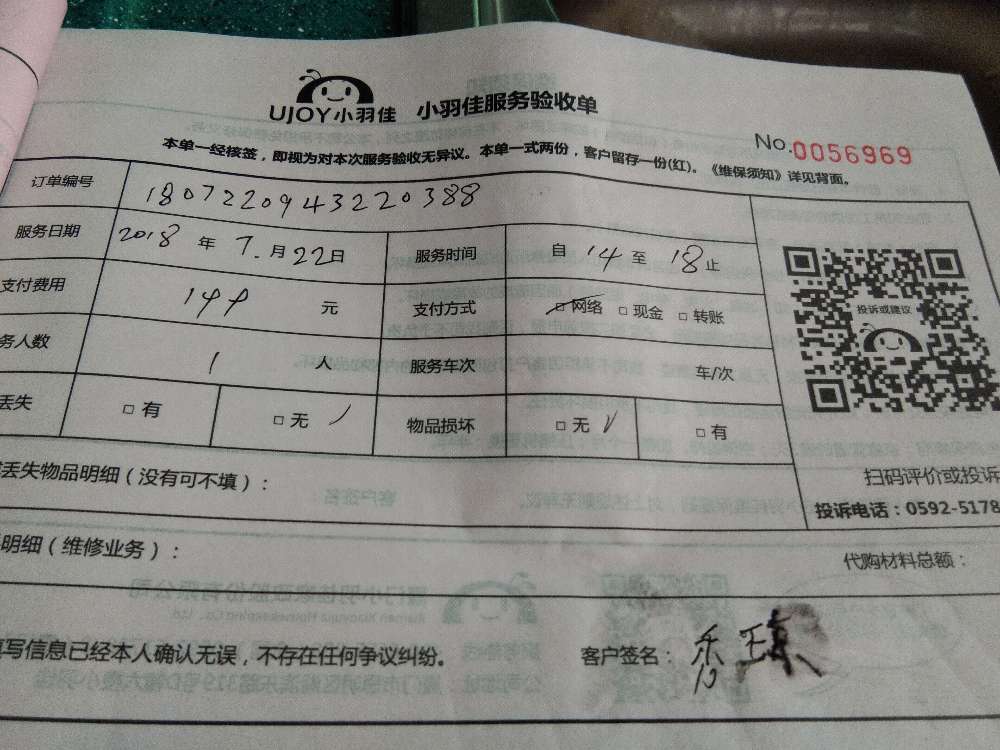 UJOY小羽佳 小羽佳服务验收单
No.0056969
本单一经核签，即视为对本次服务验收无异议。本单一式两份，客户留存一份(红)。《维保须知》详见背面。
订单编号 1807220943220388
服务日期 2018年7.月22日 服务时间 自14至18止
支付费用 149元 支付方式 □网络 □现金 □转账
务人数 1人 服务车次 车/次
丢失 □有 □无 物品损坏 □无 √ □有
投诉或建议
扫码评价或投诉
投诉电话：0592-5178
丢失物品明细（没有可不填）：
明细（维修业务）：
代购材料总额：
写信息已经本人确认无误，不存在任何争议纠纷。
客户签名：